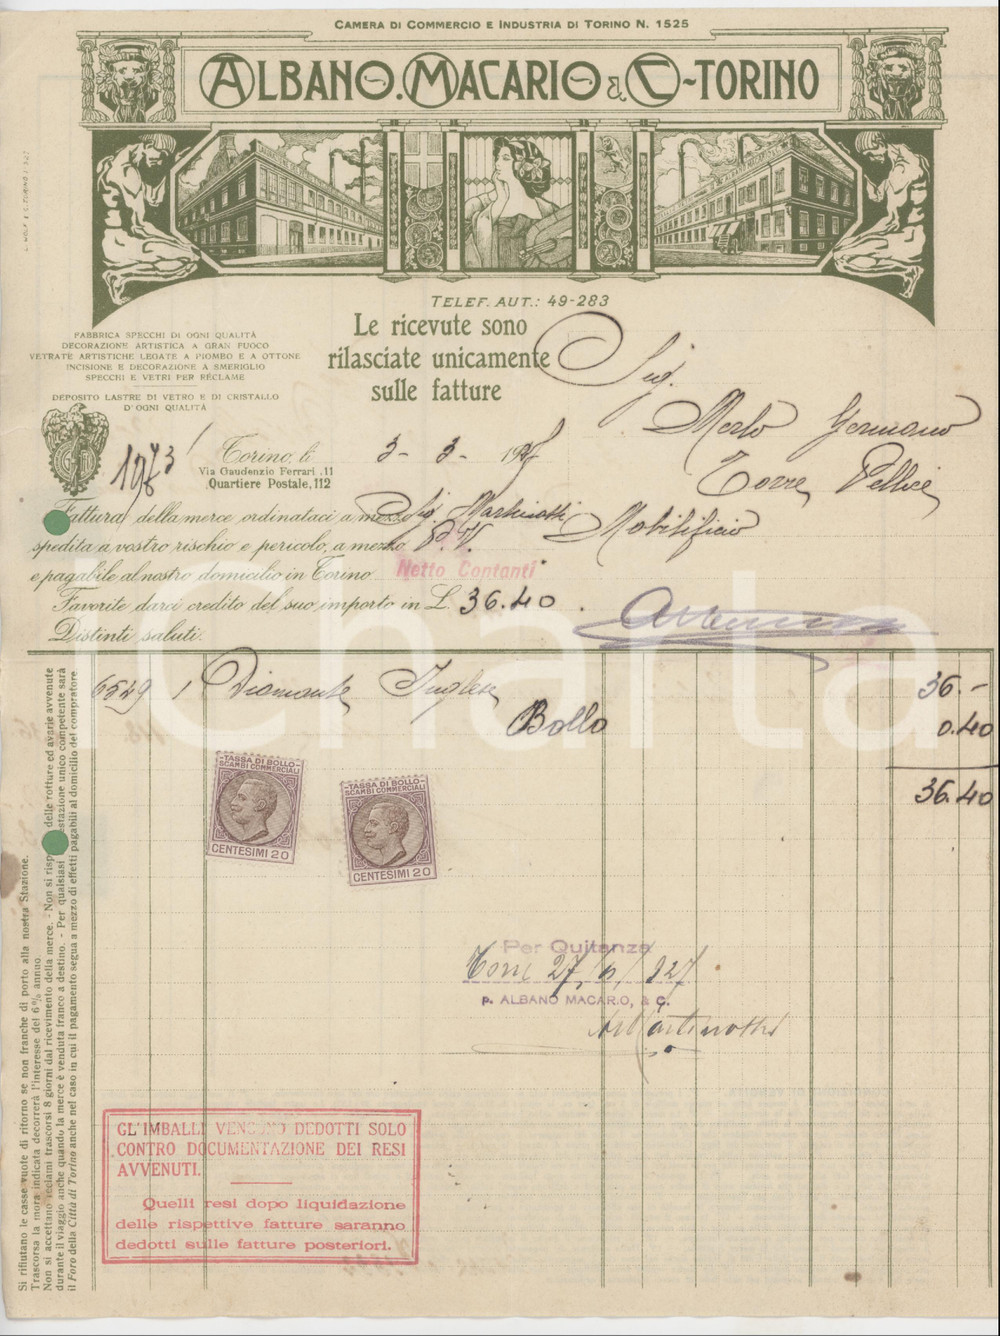 CAMERA DI COMMERCIO E INDUSTRIA DI TORINO N. 1525
ALBANO.MACARIO & C-TORINO
TELEF. AUT.: 49-283
Le ricevute sono
rilasciate unicamente
sulle fatture
FABBRICA SPECCHI DI OGNI QUALITÀ
DECORAZIONE ARTISTICA A GRAN FUOCO
VETRATE ARTISTICHE LEGATE A PIOMBO E A OTTONE
INCISIONE E DECORAZIONE A SMERIGLIO
SPECCHI E VETRI PER RÉCLAME
DEPOSITO LASTRE DI VETRO E DI CRISTALLO
D'OGNI QUALITÀ
Sig.
Merlo Germano
Torre Pellice
Mobilificio
Torino, li 3-3-1927
Via Gaudenzio Ferrari, 11
Quartiere Postale, 112
Fattura della merce ordinataci a mezzo Sig. Martinotti
spedita a vostro rischio e pericolo, a mezzo P.V.
e pagabile al nostro domicilio in Torino Netto Contanti
Favorite darci credito del suo importo in L. 36.40.
Distinti saluti.
6549 1 Diamante Inglese 36.-
Bollo 0.40
36.40
TASSA DI BOLLO
SCAMBI COMMERCIALI
CENTESIMI 20
TASSA DI BOLLO
SCAMBI COMMERCIALI
CENTESIMI 20
Per Quitanza
Torre 27/6/927
p. ALBANO MACARIO, & C.
Martinotti
GL'IMBALLI VENGONO DEDOTTI SOLO
CONTRO DOCUMENTAZIONE DEI RESI
AVVENUTI.
Quelli resi dopo liquidazione
delle rispettive fatture saranno
dedotti sulle fatture posteriori.
Si rifiutano le casse vuote di ritorno se non franche di porto alla nostra Stazione.
Trascorsa la mora indicata decorrerà l'interesse del 6% annuo.
Non si accettano reclami trascorsi 8 giorni dal ricevimento della merce. - Non si risp delle rotture ed avarie avvenute
durante il viaggio anche quando la merce è venduta franco a destino. - Per qualsiasi estazione unico competente sarà
il Foro della Città di Torino anche nel caso in cui il pagamento segua a mezzo di effetti pagabili al domicilio del compratore
iCharta